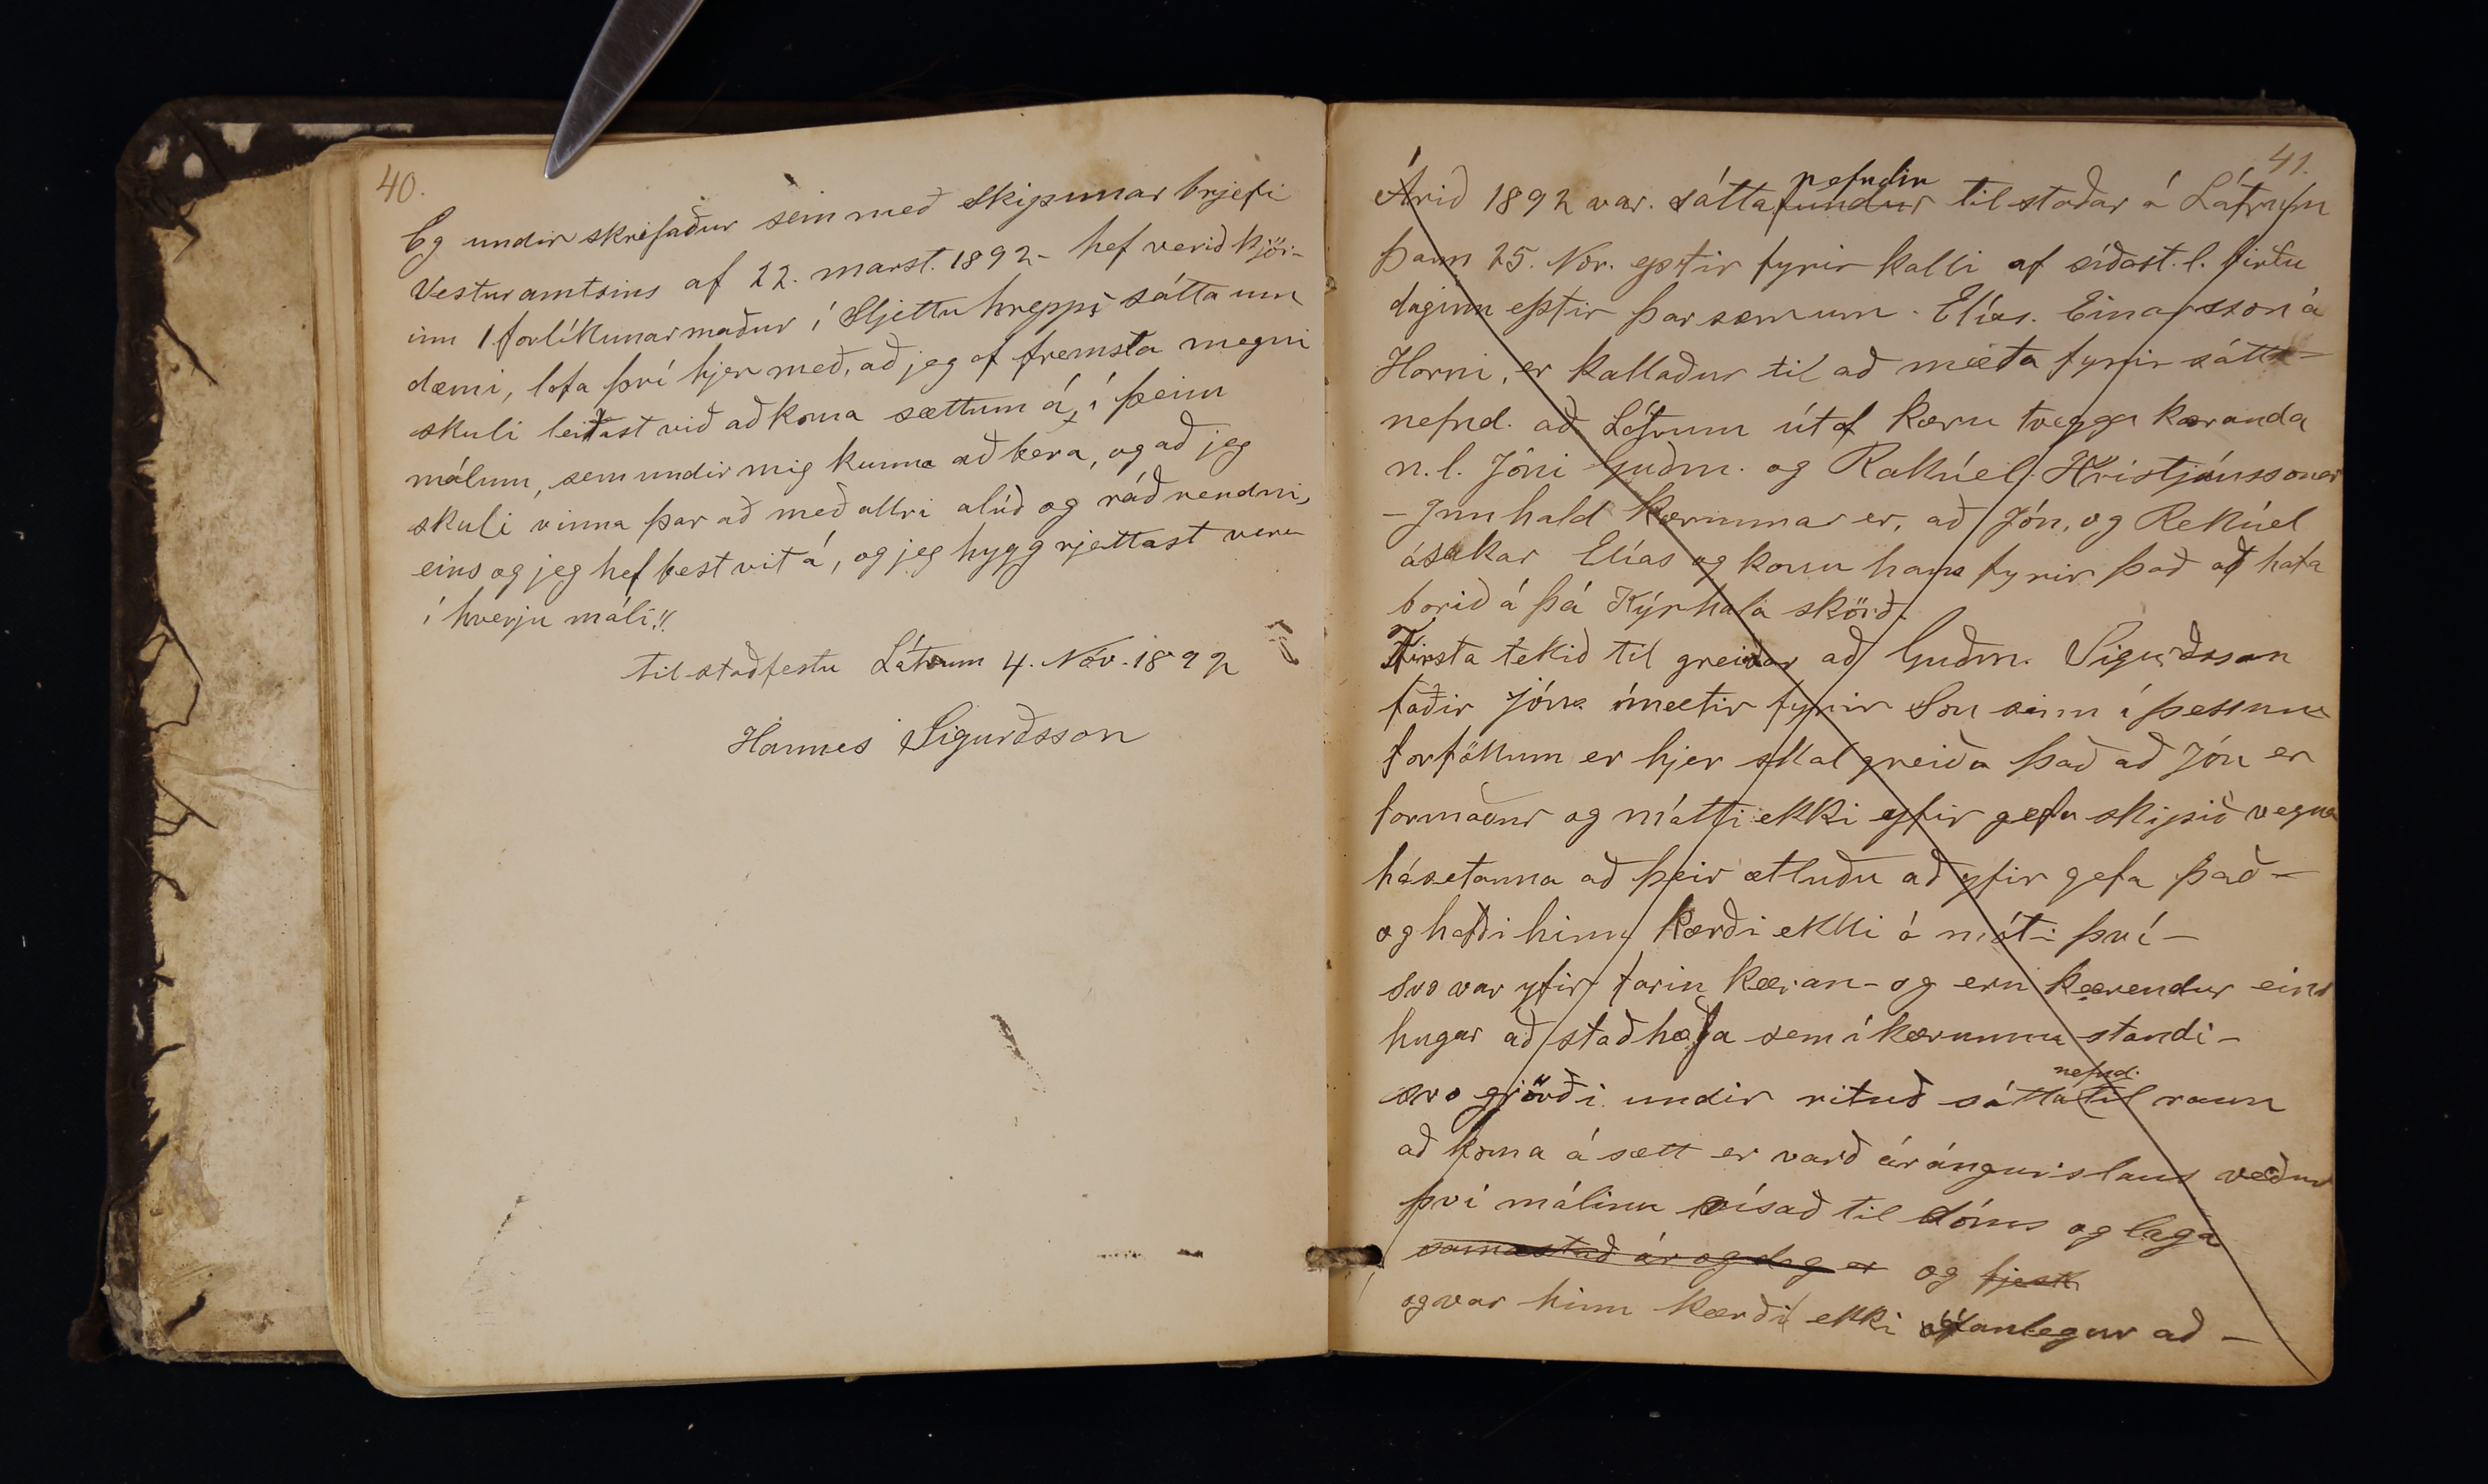 40.
Eg undir skrifaður sem með Skipunar brjefi
Vesturamtsins af 22. marst. 1892 - hef verið kjör-
inn 1 forlíkunarmaður í Sljettuhrepps sáttaum
dæmi, lofa því hjer með, að jeg af fremsta megni
skuli leitast við að koma sættum á, í þeim
málum, sem undir mig kunna að bera, og að jeg
skuli vinna þar að með allri alúð og ráðvendni,
eins og jeg hef best vit á, og jeg hygg rjettast vera
í hverju máli!!
til staðfestu Látrum 4. Nóv. 1892
Hannes Sigurðsson
41.
nefndin
Árið 1892 var. sáttafundur til staðar á Látrum
þann 25. Nov. eptir fyrir kalli af síðast. l.
daginn eptir þar sem um. Elías. Einarsson á
Horni, er kallaður til að mæta fyrir sátta-
nefnd. að Látrum útaf kæru tveggja kæranda
n.l. Jóni Guðm. og Rakúel. Kristjánssonar
- Innhald kærunnar er, að Jón, og Rekúel
ásakar Elías og konu hans fyrir það að hafa
borið á þá Kýrhala skörð.
Firsta tekið til greinar að Guðm. Sigurðsson
faðir Jóns mætir fyrir Son sinn í þessum
forföllum er hjer skal greiða það að Jón er
formaður og mátti ekki yfir gefa skipið vegna
hásetanna að þeir ætluðu að yfir gefa það -
og hafði hinn kærði ekki á móti því -
svo var yfir farin kæran - og eru kærendur eins
hugar að staðhæfa sem í kærunni standi -
nefnd.
svo gjörði undir rituð sátta til raun
að koma á sætt er varð árángurslaus verður
því málinu vísað til dóms og laga
samastað ár og dag er og
og var hinn kærði ekki
að -